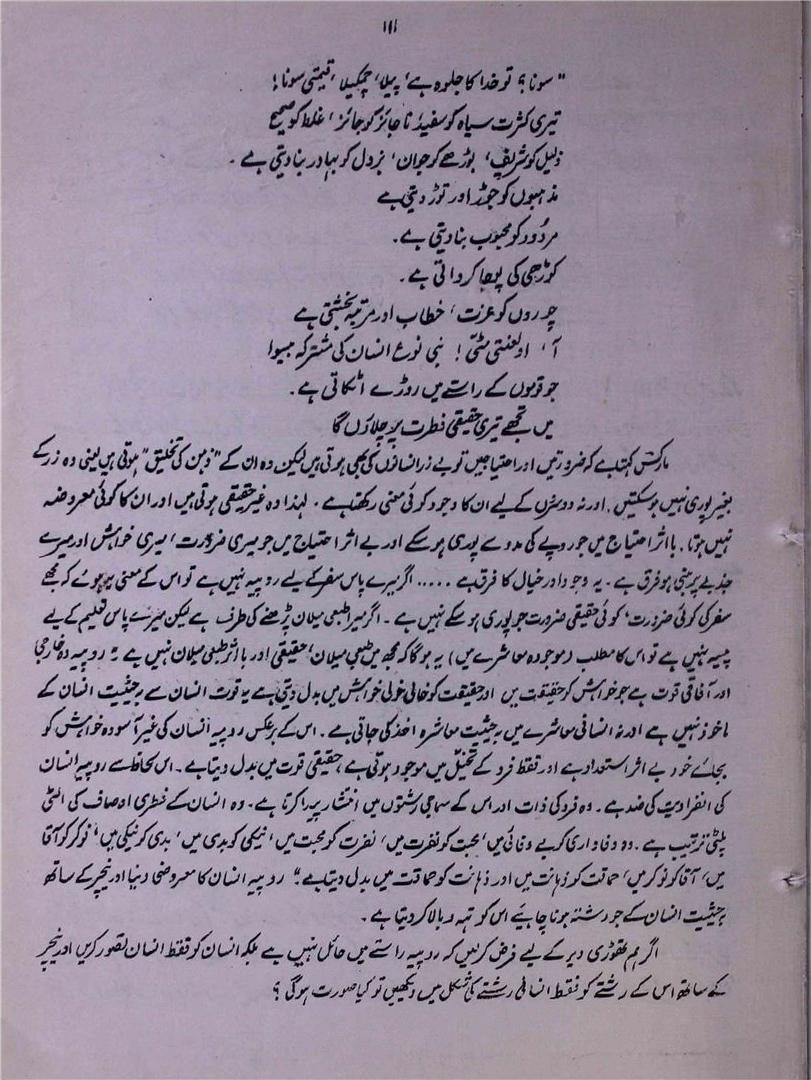 ۱۱۱
"سونا؟ تو خدا کا جلوہ ہے، پیلا، چمکیلا، قیمتی سونا!
تیری کثرت سیاہ کو سفید، ناجائز کو جائز، غلط کو صحیح
ذلیل کو شریف، بوڑھے کو جوان، بزدل کو بہادر بنا دیتی ہے۔
مذہبوں کو جوڑ اور توڑ دیتی ہے
مردُود کو محبوب بنا دیتی ہے۔
کوڑھی کی پوجا کرواتی ہے۔
چوروں کو عزت، خطاب اور مرتبہ بخشتی ہے
آ، او لعنتی مٹی! بنی نوع انسان کی مشترکہ بیسوا
جو قوموں کے راستے میں روڑے اٹکاتی ہے۔
میں تجھے تیری حقیقی فطرت پہ چلاؤں گا
مارکس کہتا ہے کہ ضرورتیں اور احتیاجیں تو بے زر انسانوں کی بھی ہوتی ہیں لیکن وہ ان کے "ذہن کی تخلیق" ہوتی ہیں یعنی وہ زر کے
بغیر پوری نہیں ہو سکتیں۔ اور نہ دوسروں کے لیے ان کا وجود کوئی معنی رکھتا ہے۔ لہٰذا وہ غیر حقیقی ہوتی ہیں اور ان کا کوئی معروضہ
نہیں ہوتا۔ بااثر احتیاج میں جو روپے کی مدد سے پوری ہو سکے اور بے اثر احتیاج میں جو میری ضرورت، میری خواہش اور میرے
جذبے پر مبنی ہو فرق ہے۔ یہ وجود اور خیال کا فرق ہے ..... اگر میرے پاس سفر کے لیے روپیہ نہیں ہے تو اس کے معنی یہ ہوئے کہ مجھے
سفر کی کوئی ضرورت، کوئی حقیقی ضرورت جو پوری ہو سکے نہیں ہے۔ اگر میرا طبعی میلان پڑھنے کی طرف ہے لیکن میرے پاس تعلیم کے لیے
پیسہ نہیں ہے تو اس کا مطلب (موجودہ معاشرے میں) یہ ہوگا کہ مجھ میں طبعی میلان، حقیقی اور بااثر طبعی میلان نہیں ہے۔ روپیہ وہ خارجی
اور آفاقی قوت ہے جو خواہش کو حقیقت میں اور حقیقت کو خالی خولی خواہش میں بدل دیتی ہے یہ قوت انسان سے بہ حیثیت انسان کے
ماخوذ نہیں ہے اور نہ انسانی معاشرے میں بہ حیثیت معاشرہ اخذ کی جاتی ہے۔ اس کے برعکس روپیہ انسان کی غیر آسودہ خواہش کو
بجائے خود بے اثر استعداد ہے اور فقط فرد کے تخیّل میں موجود ہوتی ہے، حقیقی قوت میں بدل دیتا ہے۔ اس لحاظ سے روپیہ انسان
کی انفرادیت کی ضد ہے۔ وہ فرد کی ذات اور اس کے سماجی رشتوں میں انتشار پیدا کرتا ہے۔ وہ انسان کے فطری اوصاف کی الٹی
پلٹی ترتیب ہے۔ وہ وفاداری کو بے وفائی میں، محبت کو نفرت میں، نفرت کو محبت میں، نیکی کو بدی میں، بدی کو نیکی میں، نوکر کو آقا
میں، آقا کو نوکر میں، حماقت کو ذہانت میں اور ذہانت کو حماقت میں بدل دیتا ہے۔" روپیہ انسان کا معروضی دنیا اور نیچر کے ساتھ
بہ حیثیت انسان کے جو رشتہ ہونا چاہیے اس کو تہہ و بالا کر دیتا ہے۔
اگر ہم تھوڑی دیر کے لیے فرض کر لیں کہ روپیہ راستے میں حائل نہیں ہے بلکہ انسان کو فقط انسان تصور کریں اور نیچر
کے ساتھ اس کے رشتے کو فقط انسانی رشتے کی شکل میں دیکھیں تو کیا صورت ہوگی؟